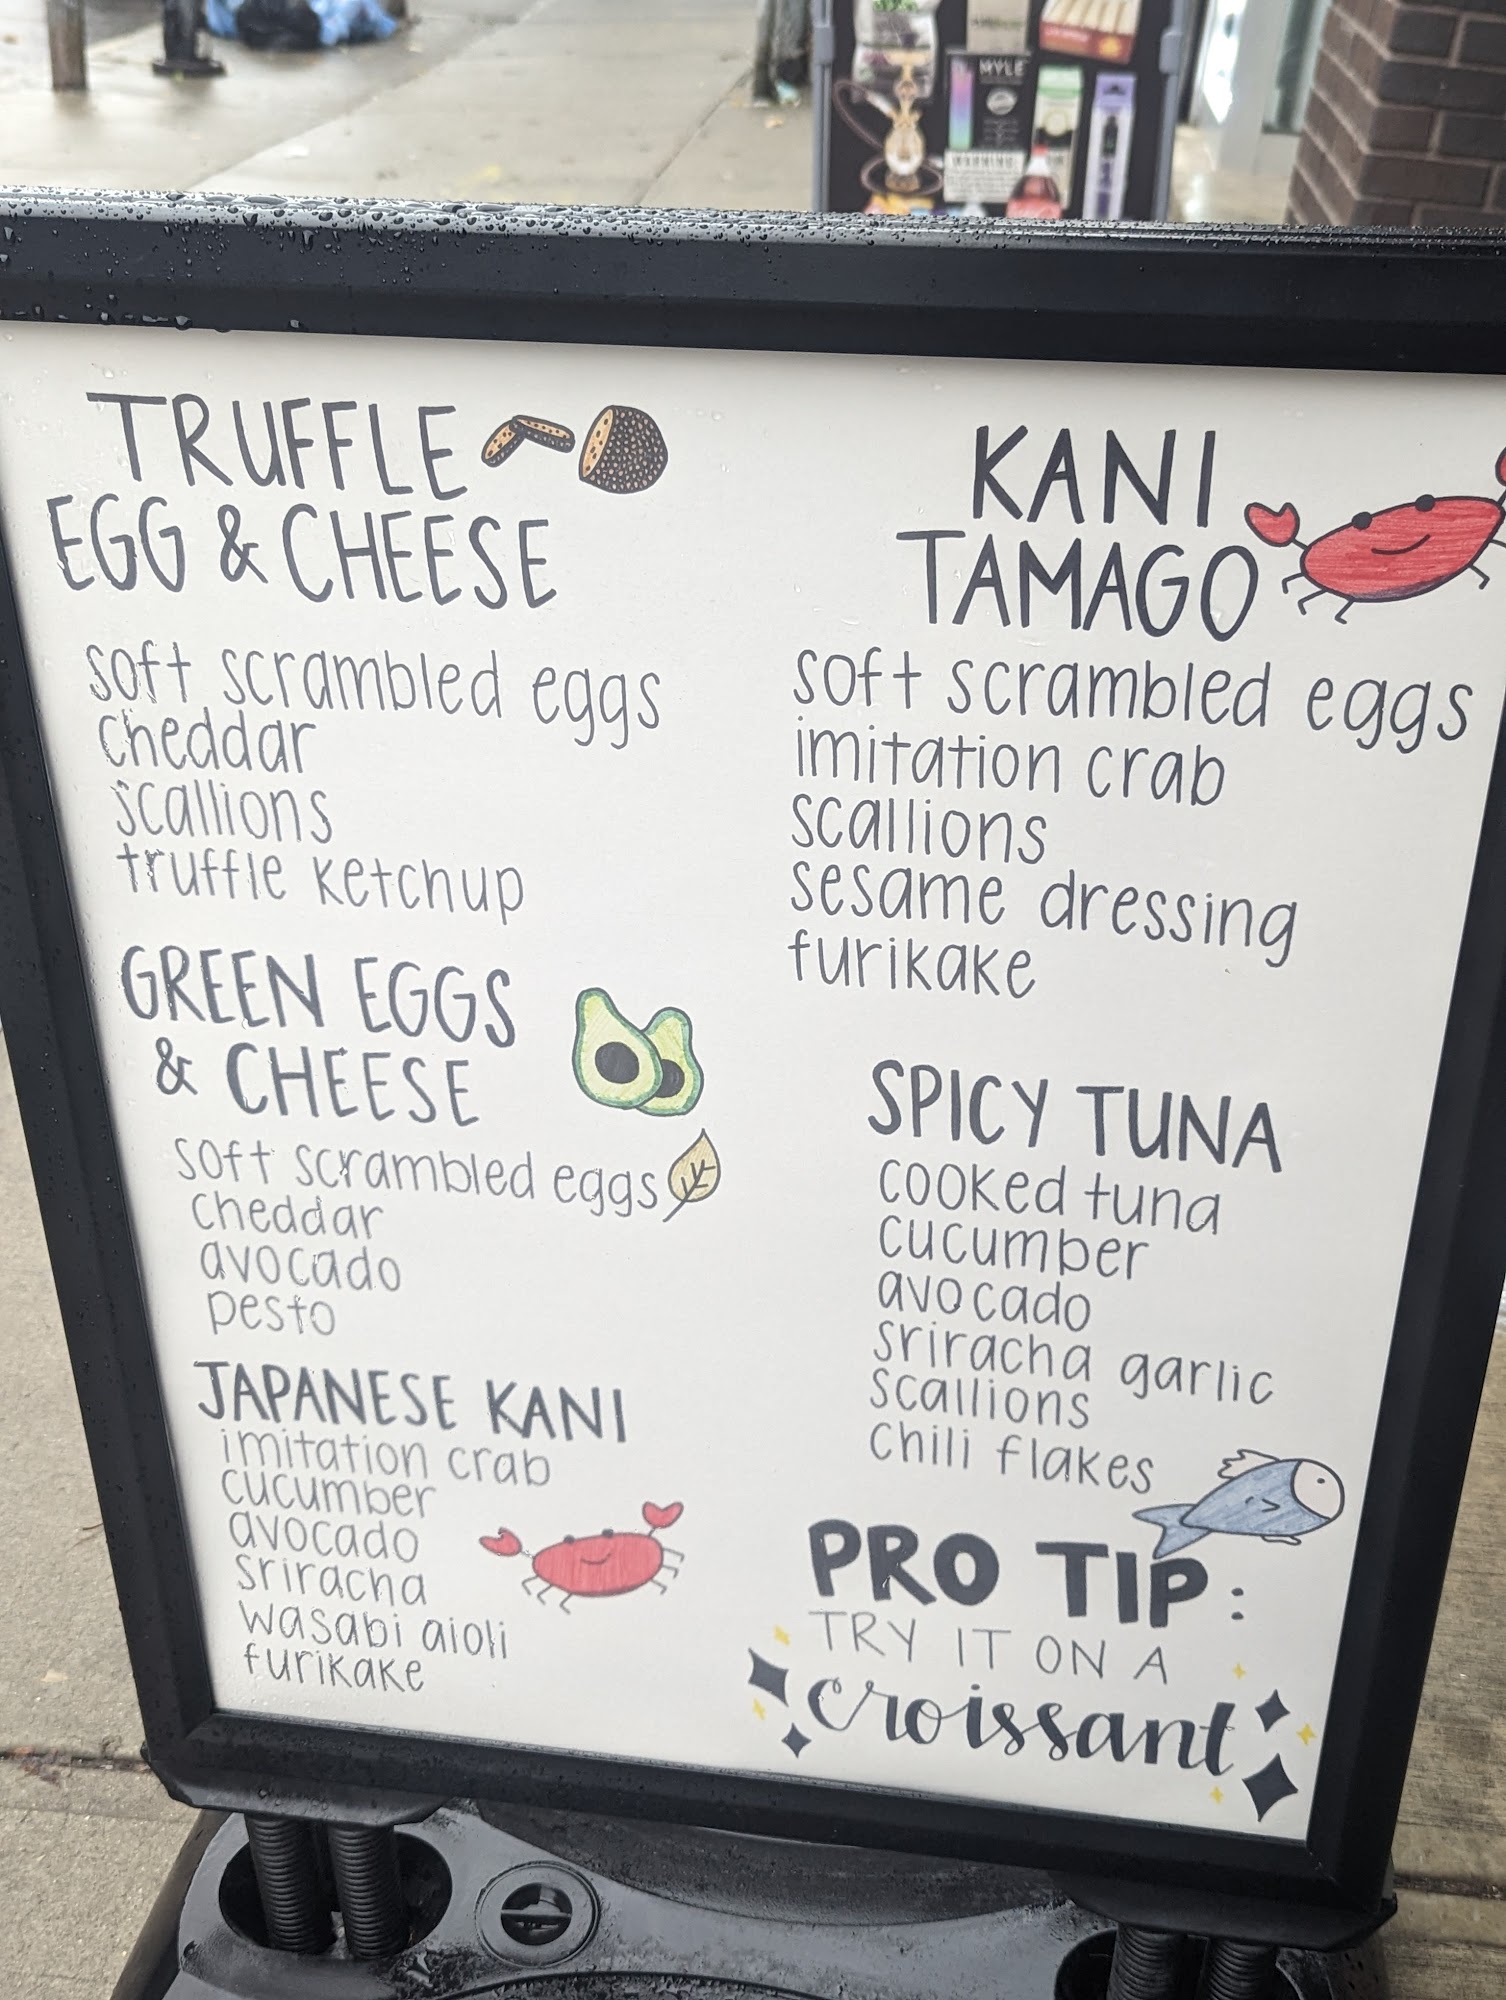 MYLE
WARNING:
TRUFFLE
EGG & CHEESE
soft scrambled eggs
cheddar
scallions
truffle ketchup
GREEN EGGS
& CHEESE
soft scrambled eggs
cheddar
avocado
pesto
JAPANESE KANI
imitation crab
cucumber
avocado
sriracha
wasabi aioli
furikake
KANI
TAMAGO
soft scrambled eggs
imitation crab
scallions
sesame dressing
furikake
SPICY TUNA
cooked tuna
cucumber
avocado
sriracha garlic
scallions
chili flakes
PRO TIP:
TRY IT ON A
croissant